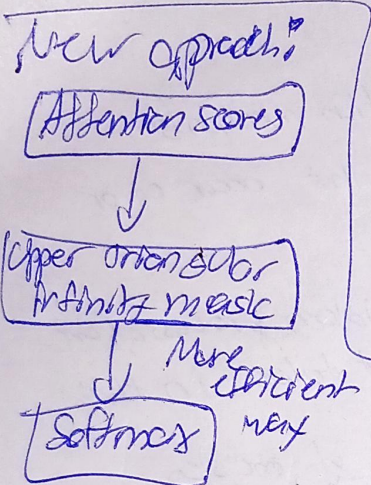 New approach:
Attention scores
Upper triangular
infinity mask
More
efficient
way
Softmax